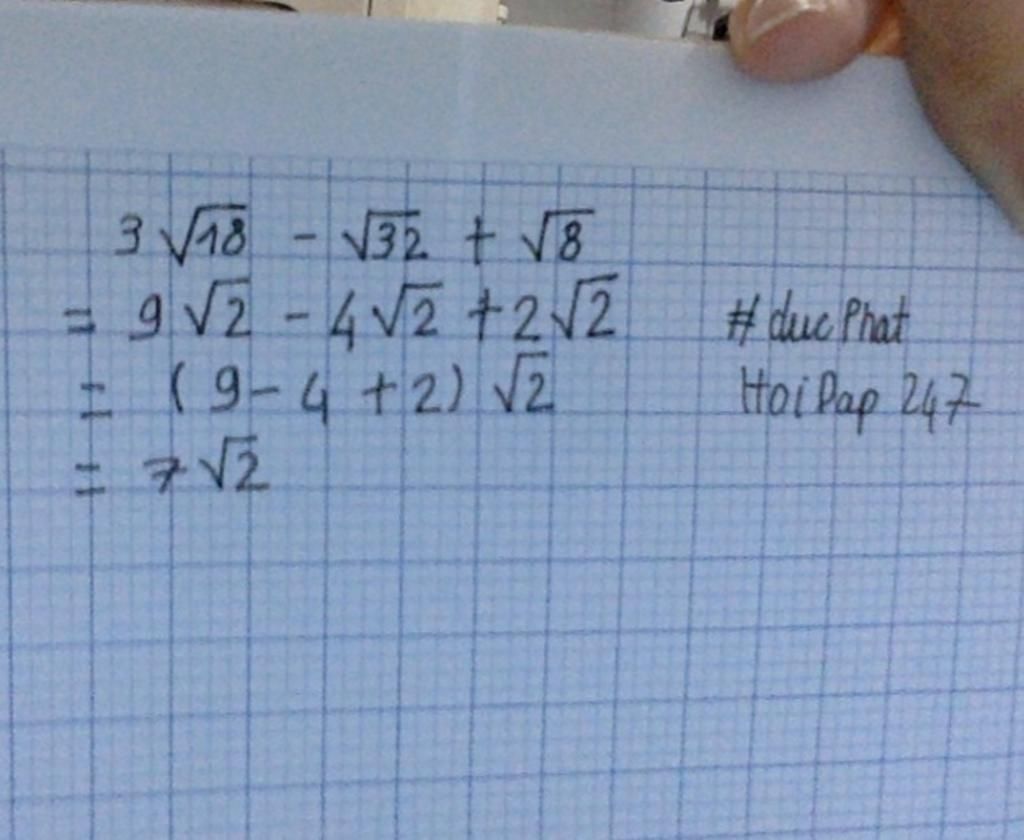 3√18 - √32 + √8
= 9√2 - 4√2 + 2√2
= (9 - 4 + 2)√2
= 7√2
# ducPhat
HoiDap 247